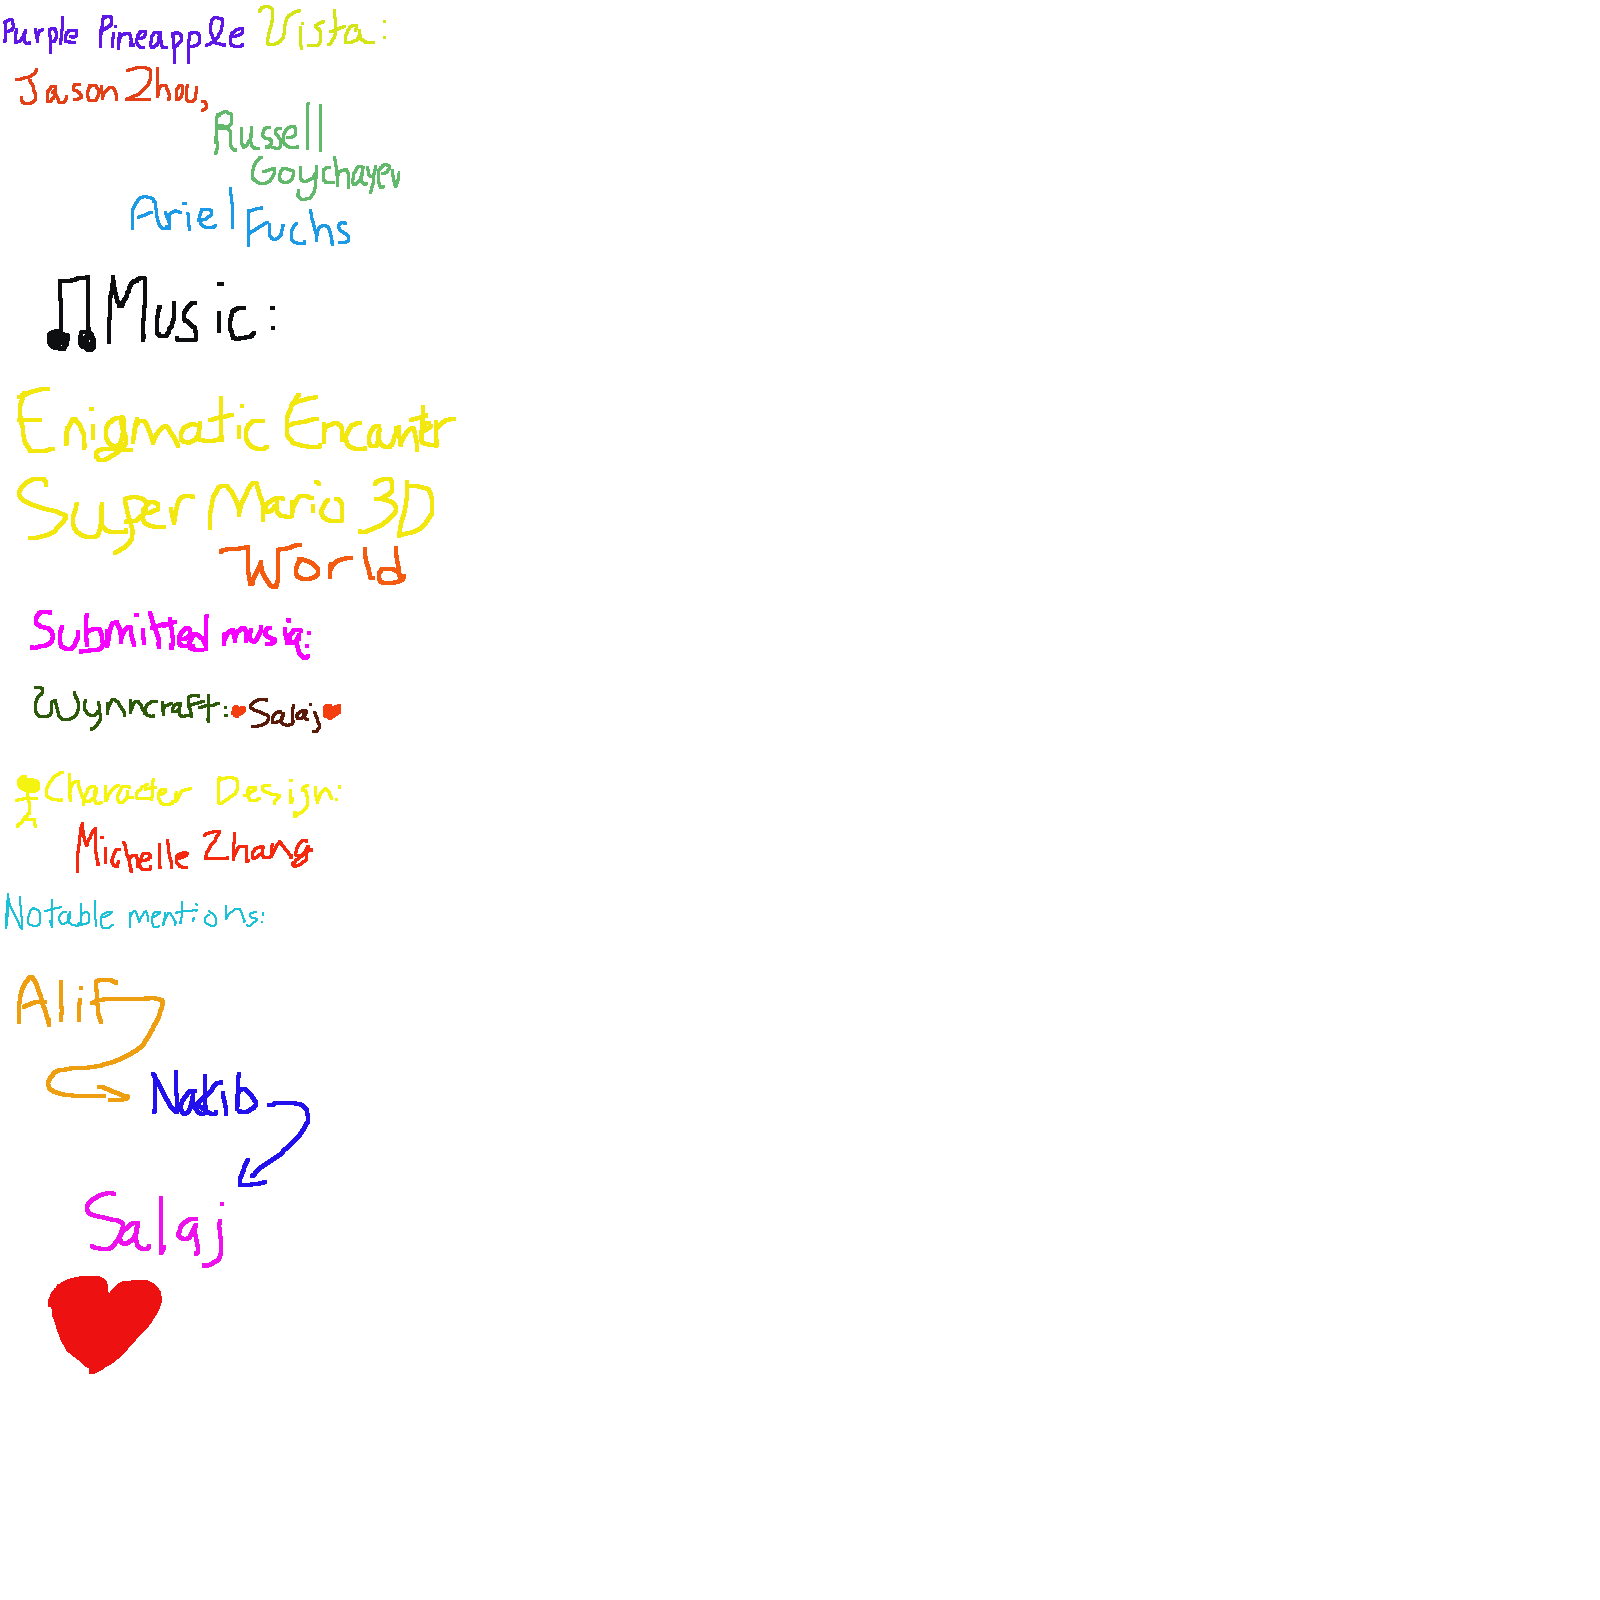 Purple Pineapple Vista:
Jason Zhou,
Russell
Goychayev
Ariel Fuchs
Music:
Enigmatic Encanter
Super Mario 3D
World
Submitted music:
Wynncraft: Salaj
Character Design:
Michelle Zhang
Notable mentions:
Alif
Nakib
Salaj